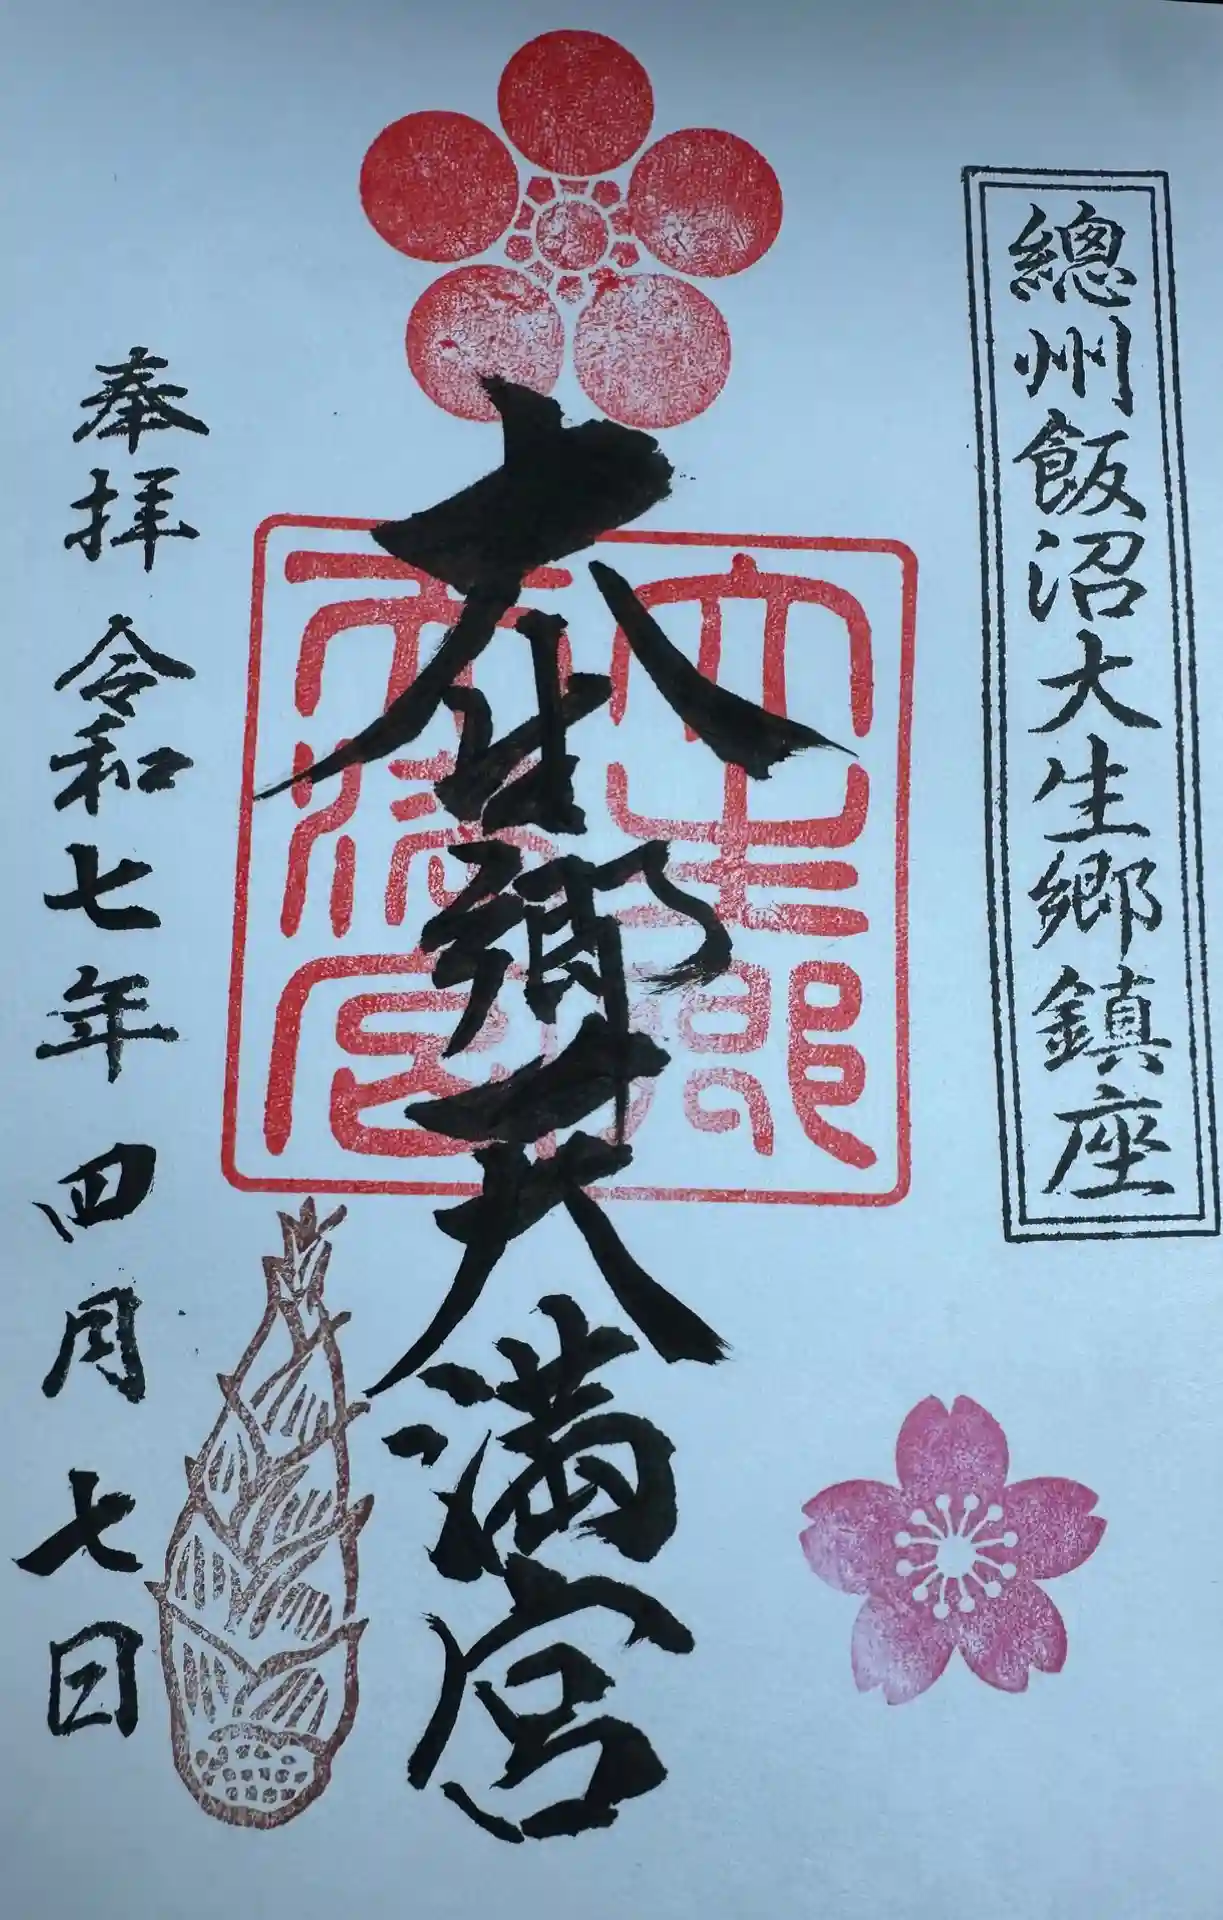 總州飯沼大生郷鎮座
大生郷天満宮
奉拝 令和七年四月七日